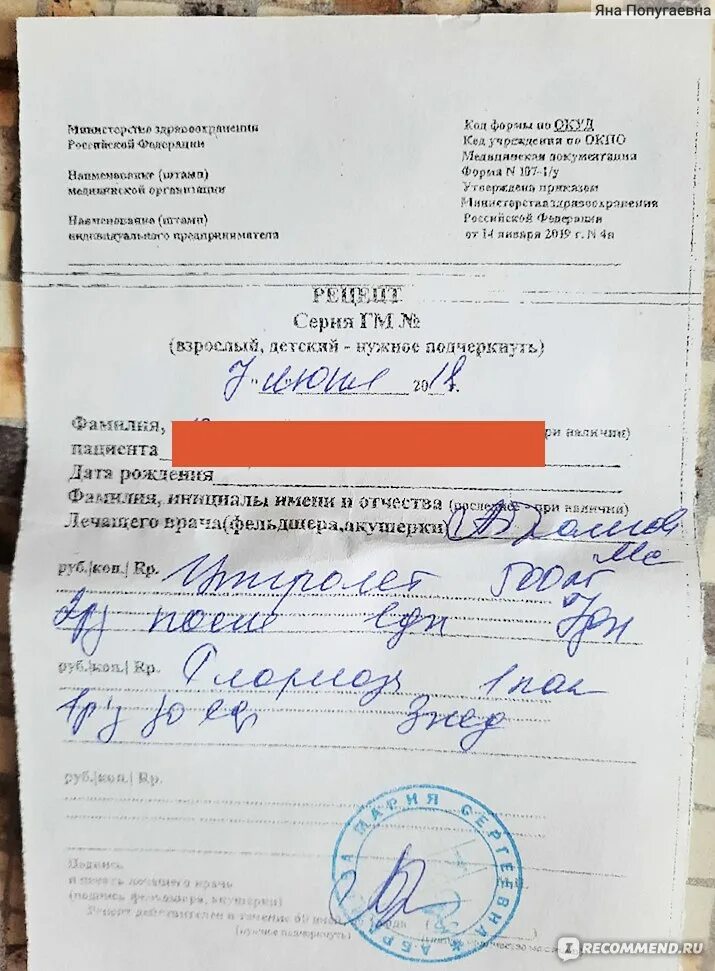 Яна Попугаевна
Министерство здравоохранения
Российской Федерации
Наименование (штамп)
медицинской организации
Наименование (штамп)
индивидуального предпринимателя
Код формы по ОКУД
Код учреждения по ОКПО
Медицинская документация
Форма N 107-1/у
Утверждена приказом
Министерства здравоохранения
Российской Федерации
от 14 января 2019 г. N 4н
РЕЦЕПТ
Серия ГМ №
(взрослый, детский - нужное подчеркнуть)
7 июня 2018 г.
Фамилия, при наличии)
пациента
Дата рождения
Фамилия, инициалы имени и отчества (последнее - при наличии)
Лечащего врача(фельдшера,акушерки)
руб.|коп.| Rp. 500 мг
после еды
руб.|коп.| Rp. 1 пак
руб.|коп.| Rp.
МАРИЯ СЕРГЕЕВНА
Подпись
и печать лечащего врача
(подпись фельдшера, акушерки)
Рецепт действителен в течение 60 дней
(нужное подчеркнуть)
IRECOMMEND.RU